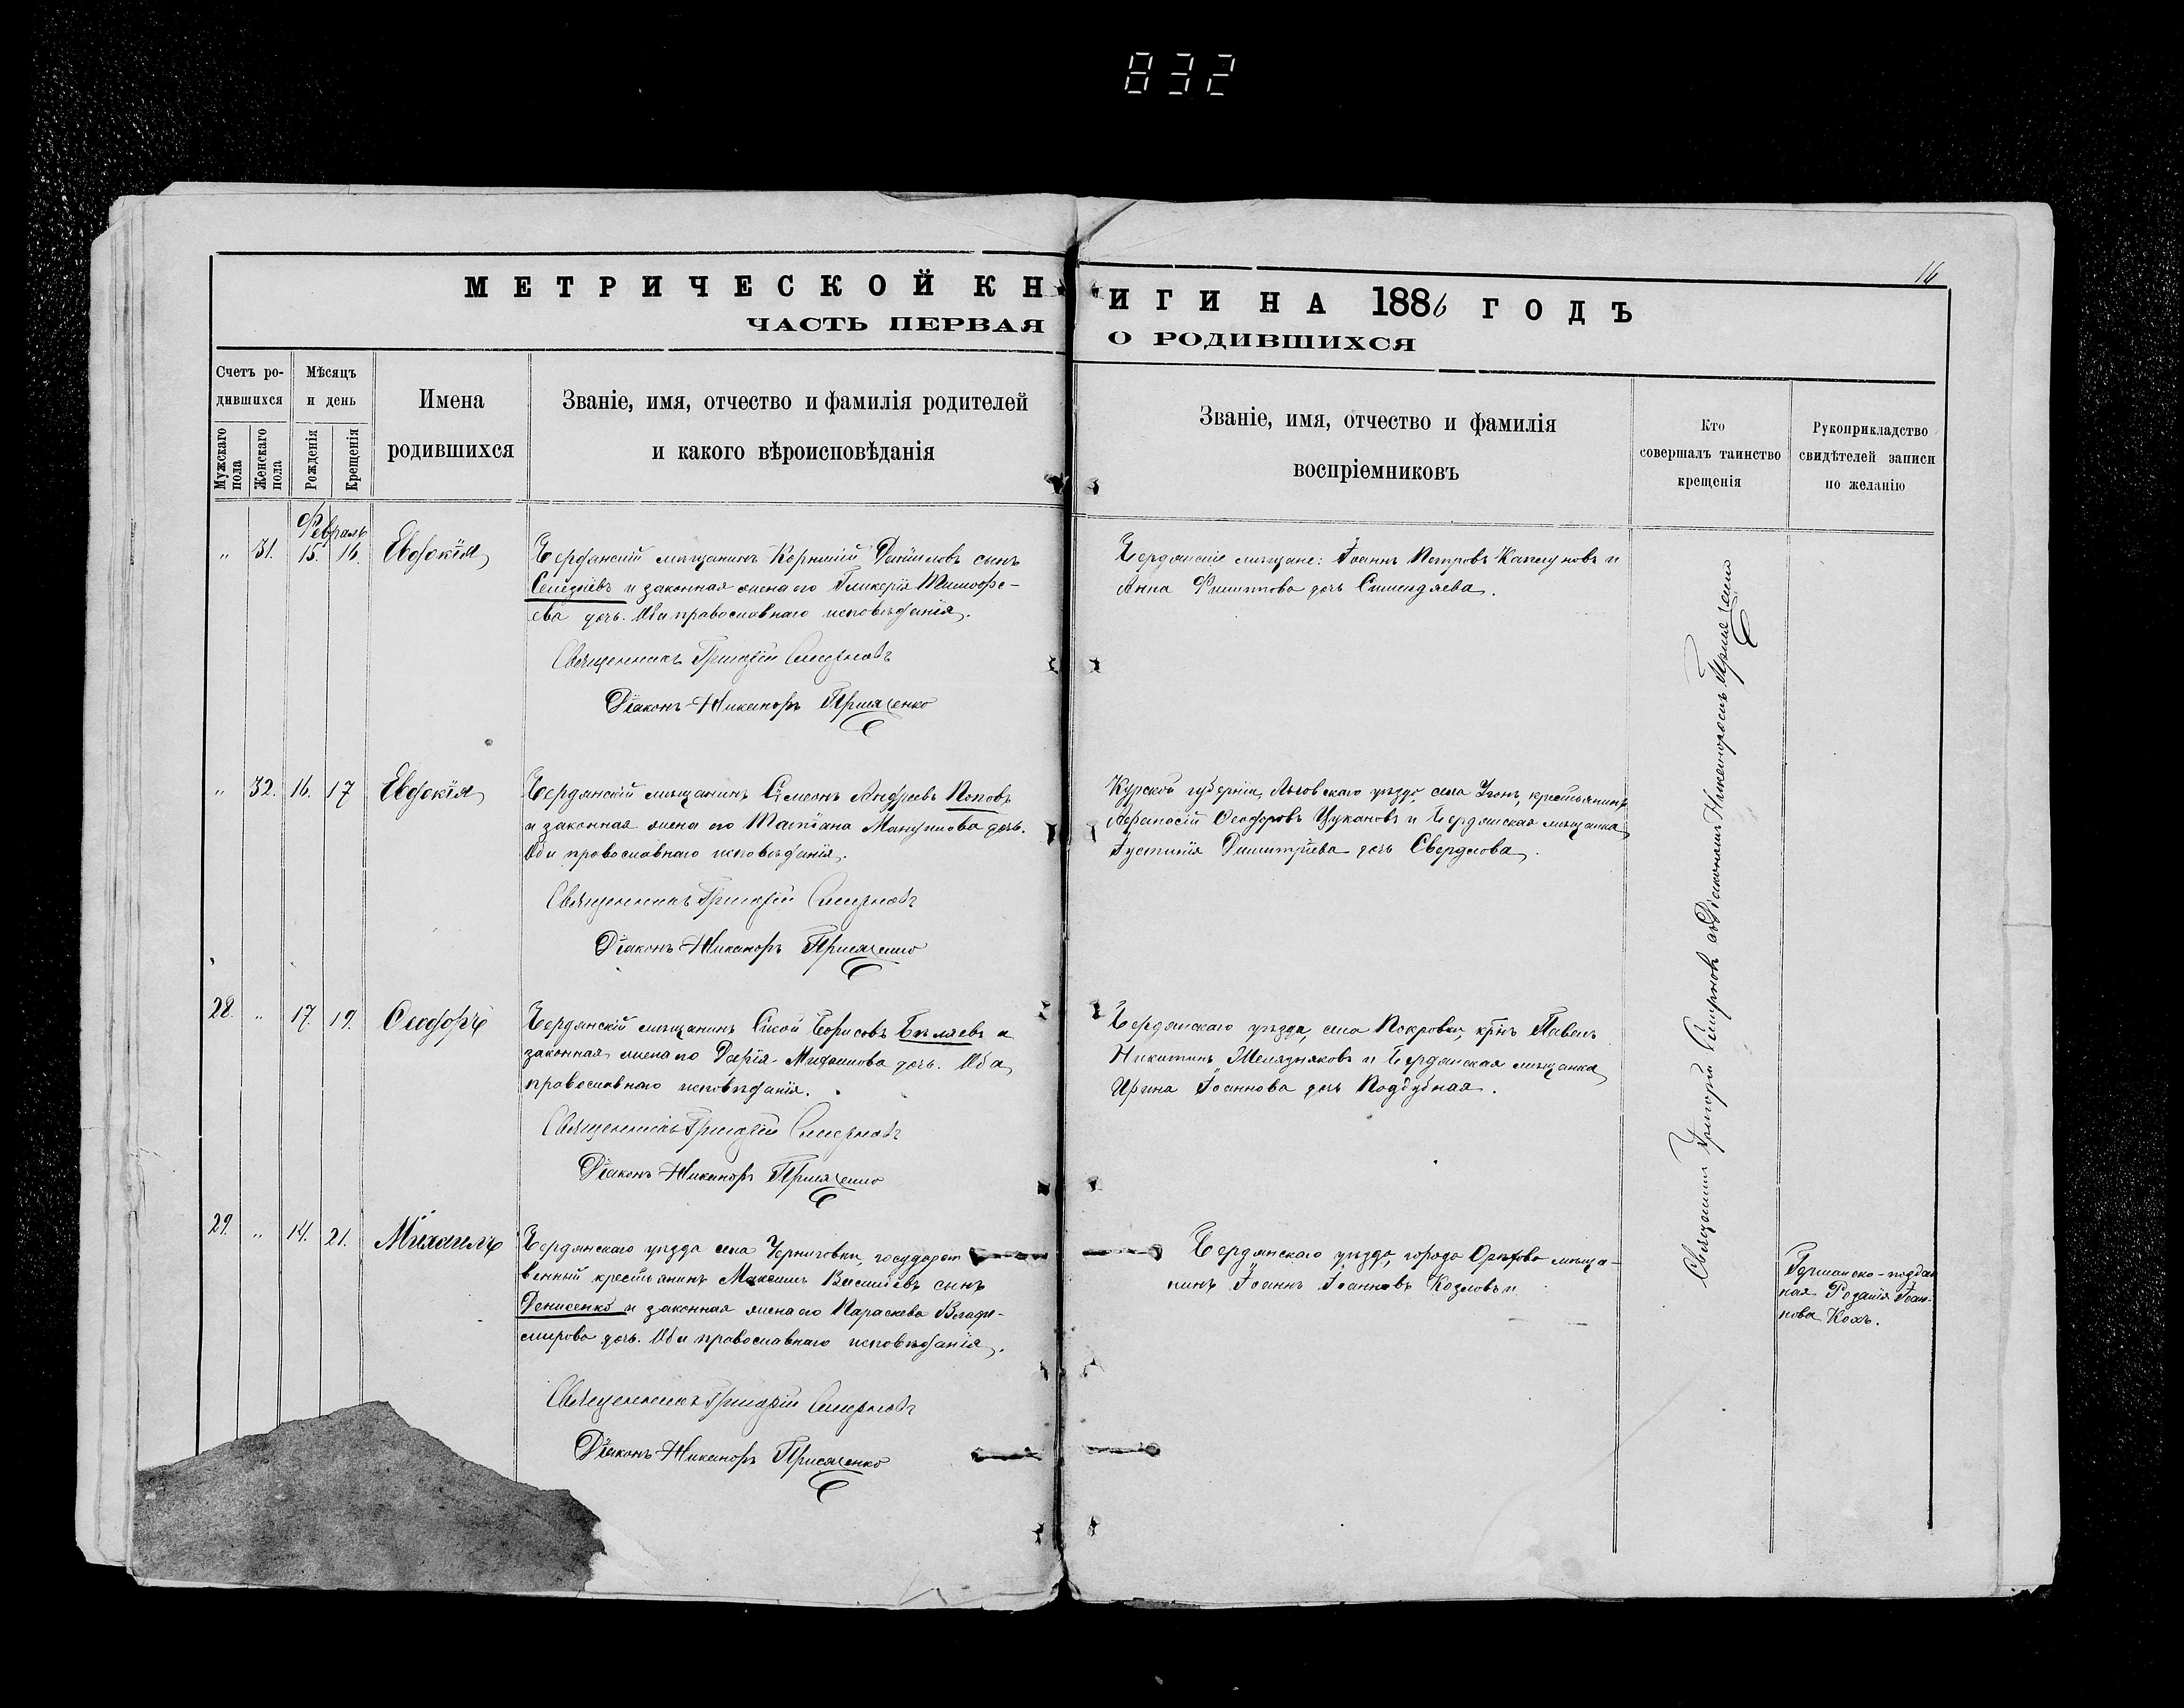 832
16
МЕТРИЧЕСКОЙ КНИГИ НА 1886 ГОДЪ
ЧАСТЬ ПЕРВАЯ О РОДИВШИХСЯ
Счетъ ро-
дившихся
Мужскаго пола
Женскаго пола
Мѣсяцъ
и день
Рожденія
Крещенія
Имена
родившихся
Званіе, имя, отчество и фамилія родителей
и какого вѣроисповѣданія
Званіе, имя, отчество и фамилія
воспріемниковъ
Кто
совершалъ таинство
крещенія
Рукоприкладство
свидѣтелей записи
по желанію
Февраль
" 31. 15. 16. Евдокія
Бердянскій мѣщанинъ Корнилій Даніиловъ сынъ
Селезневъ и законная жена его Гликерія Тимофе-
ева дочь. Оба православнаго исповѣданія.
Священникъ Григорій Смирновъ
Діаконъ Никаноръ Присяженко
Бердянскіе мѣщане: Іоаннъ Петровъ Капшуновъ и
Анна Филиппова дочь
" 32. 16. 17 Евдокія
Бердянскій мѣщанинъ Сімеонъ Андреевъ Поповъ
и законная жена его Татіана Мануилова дочь.
Оба православнаго исповѣданія.
Священникъ Григорій Смирновъ
Діаконъ Никаноръ Присяженко
Курской губерніи, Льговскаго уѣзда, села Угонъ, крестьянинъ
Афанасій Ѳеодоровъ Цукановъ и Бердянская мѣщанка
Іустинія Димитріева дочь Свердлова.
28. " 17. 19. Ѳеодоръ
Бердянскій мѣщанинъ Сисой Борисовъ Бѣляевъ и
законная жена его Дарія Михаилова дочь. Оба
православнаго исповѣданія.
Священникъ Григорій Смирновъ
Діаконъ Никаноръ Присяженко
Бердянскаго уѣзда, села Покровки, кр̃нъ Павелъ
Никитинъ Желязняковъ и Бердянская мѣщанка
Ирина Іоаннова дочь Поддубная.
29. " 14. 21. Михаилъ
Бердянскаго уѣзда села Черниговки, государст
венный крестьянинъ Максимъ Василіевъ сынъ
Денисенко и законная жена его Параскева Влади-
мирова дочь. Оба православнаго исповѣданія.
Священникъ Григорій Смирновъ
Діаконъ Никаноръ Присяженко
Бердянскаго уѣзда, города Орѣхова мѣща-
нинъ Іоаннъ Іоанновъ Козловъ и
Германско-поддан
ная Розалія Іоан-
нова Кохъ.
Священникъ Григорій Смирновъ съ Діакономъ Никаноромъ Присяженко